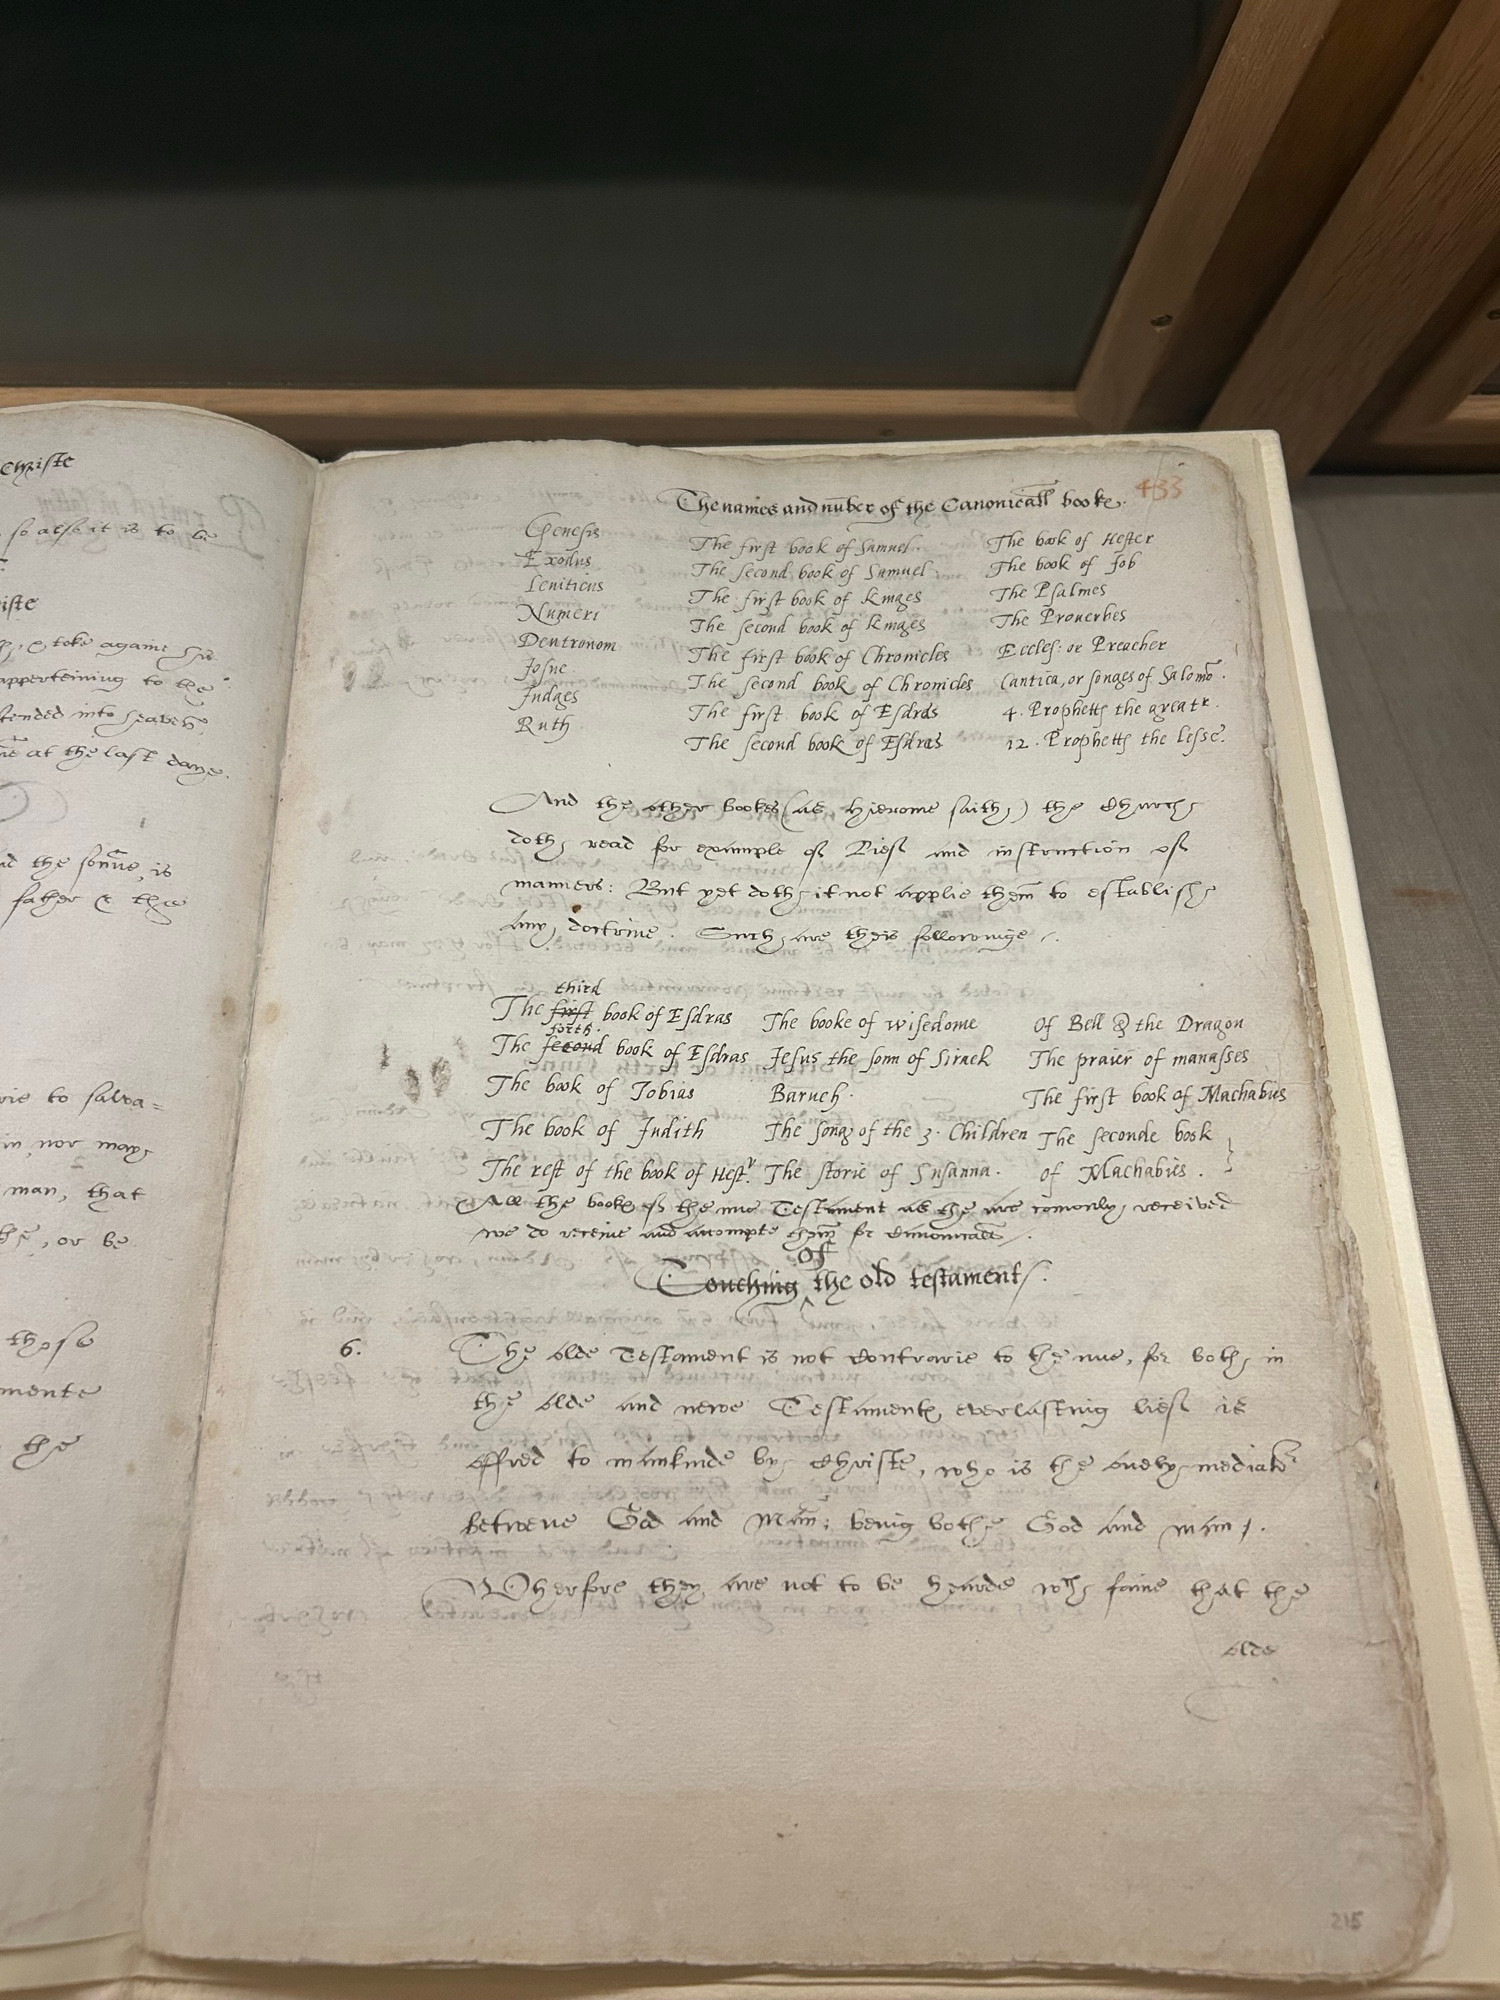 Christe
so also it is to be
riste
, & toke againe his
apperteining to the
tended into heaven,
at the last daye.
nd the sonne, is
father & the
rie to salva=
in, nor may
man, that
the, or be
those
mente
the
433
The names and nūber of the Canonicall bookes.
Genesis
Exodus
Leuiticus
Numeri
Deutronom
Josue
Judges
Ruth
The first book of Samuel.
The second book of Samuel
The first book of Kinges
The second book of Kinges
The first book of Chronicles
The second book of Chronicles
The first book of Esdras
The second book of Esdras
The book of Hester
The book of Job
The Psalmes
The Prouerbes
Eccles: or Preacher
Cantica, or songes of Salomō.
4. Prophetts the greatr.
12. Prophetts the lesse.
And the other bookes (as Hierome saith) the Church
doth read for example of liefe and instruction of
manners: But yet doth it not applie them to establish
any doctrine. Such are theis followinge.
third
The first book of Esdras
forth.
The second book of Esdras
The book of Tobias
The book of Judith
The rest of the book of Hestr.
The booke of wisedome
Jesus the sonn of Sirack
Baruch.
The song of the 3. Children
The storie of Susanna.
Of Bell & the Dragon
The praier of manasses
The first book of Machabies
The seconde book
of Machabies.
All the bookes of the nue Testament as the are comonly received
we do receive and accompte them for Canonicall.
Of
Touching the old testament.
6. The olde Testament is not Contrarie to the nue, for both in
the olde and newe Testamentes everlasting liefe is
offred to mankinde by Christe, who is the onely mediator
betwene God and Man: being bothe God and man.
Wherfore they are not to be hearde wch faine that the
olde
215